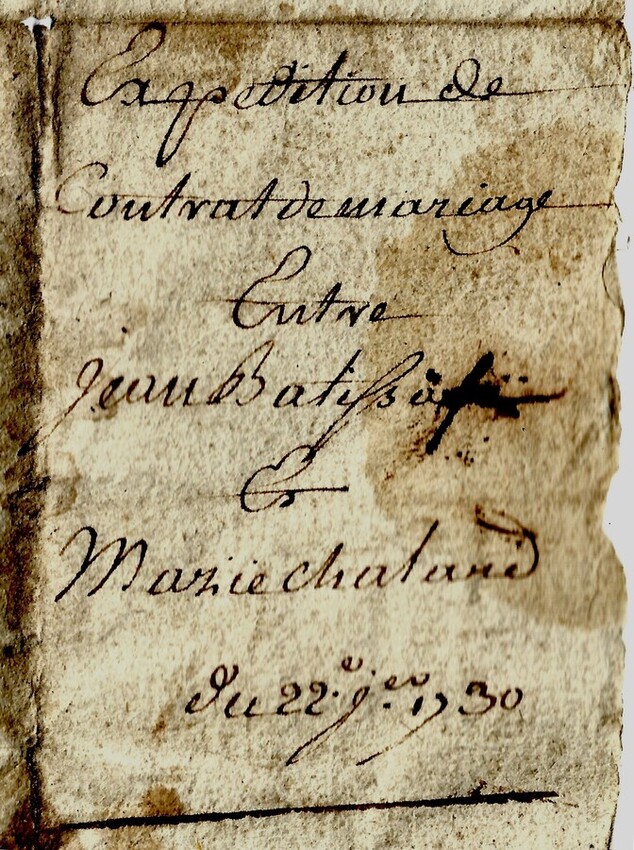 Expedition de
Contrat de mariage
Entre
Jean Batissa
&
Marie chaland
du 22.e j.er 1730